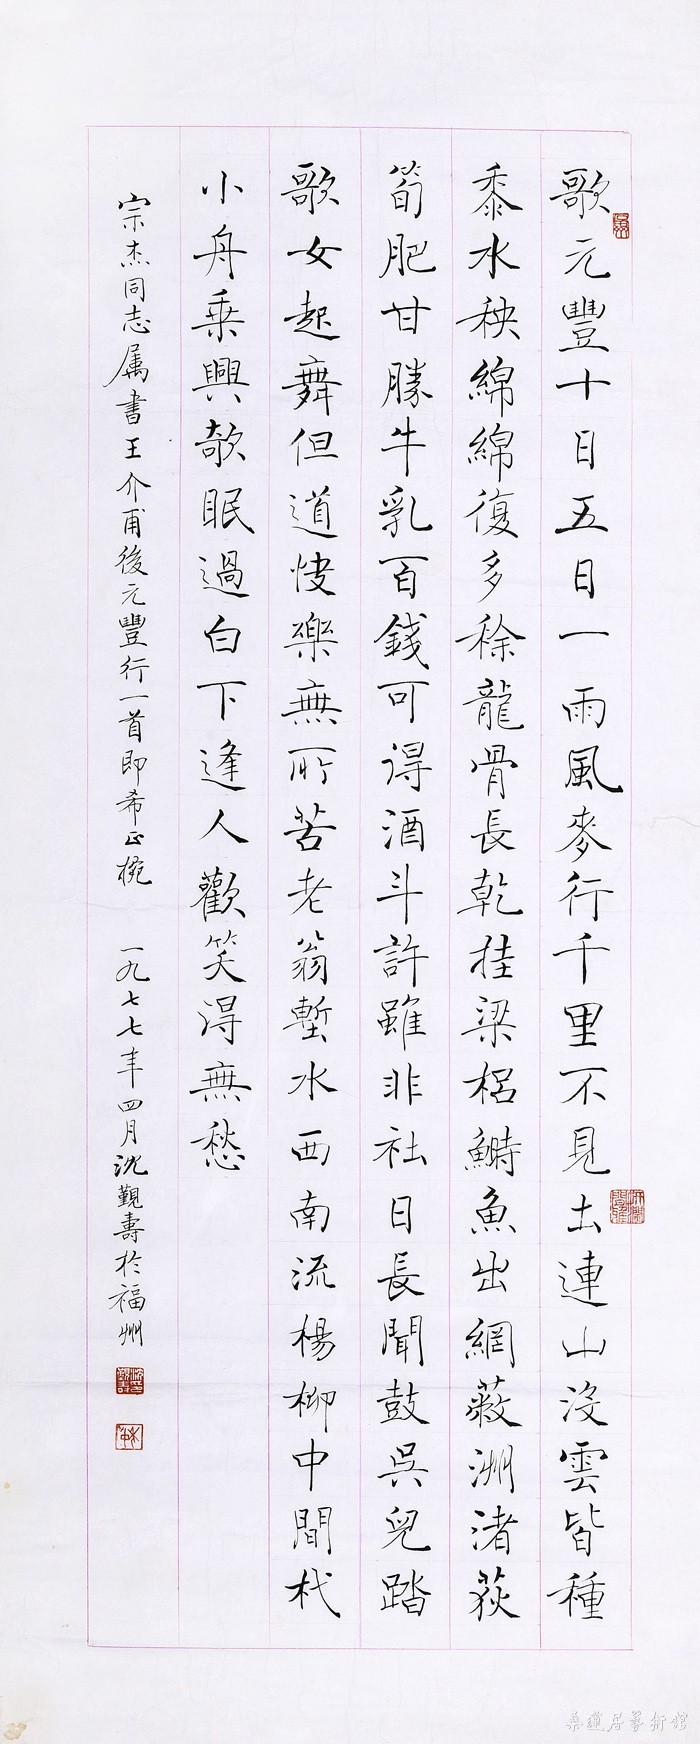 歌元豐十日五日一雨風麥行千里不見土連山沒雲皆種
黍水秧綿綿復多稌龍骨長乾挂梁梠鰣魚出網蔽洲渚荻
筍肥甘勝牛乳百錢可得酒斗許雖非社日長聞鼓吳兒踏
歌女起舞但道快樂無所苦老翁塹水西南流楊柳中間杙
小舟乘興欹眠過白下逢人歡笑得無愁
宗杰同志属書王介甫後元豐行一首即希正椀 一九七七年四月沈覲壽於福州